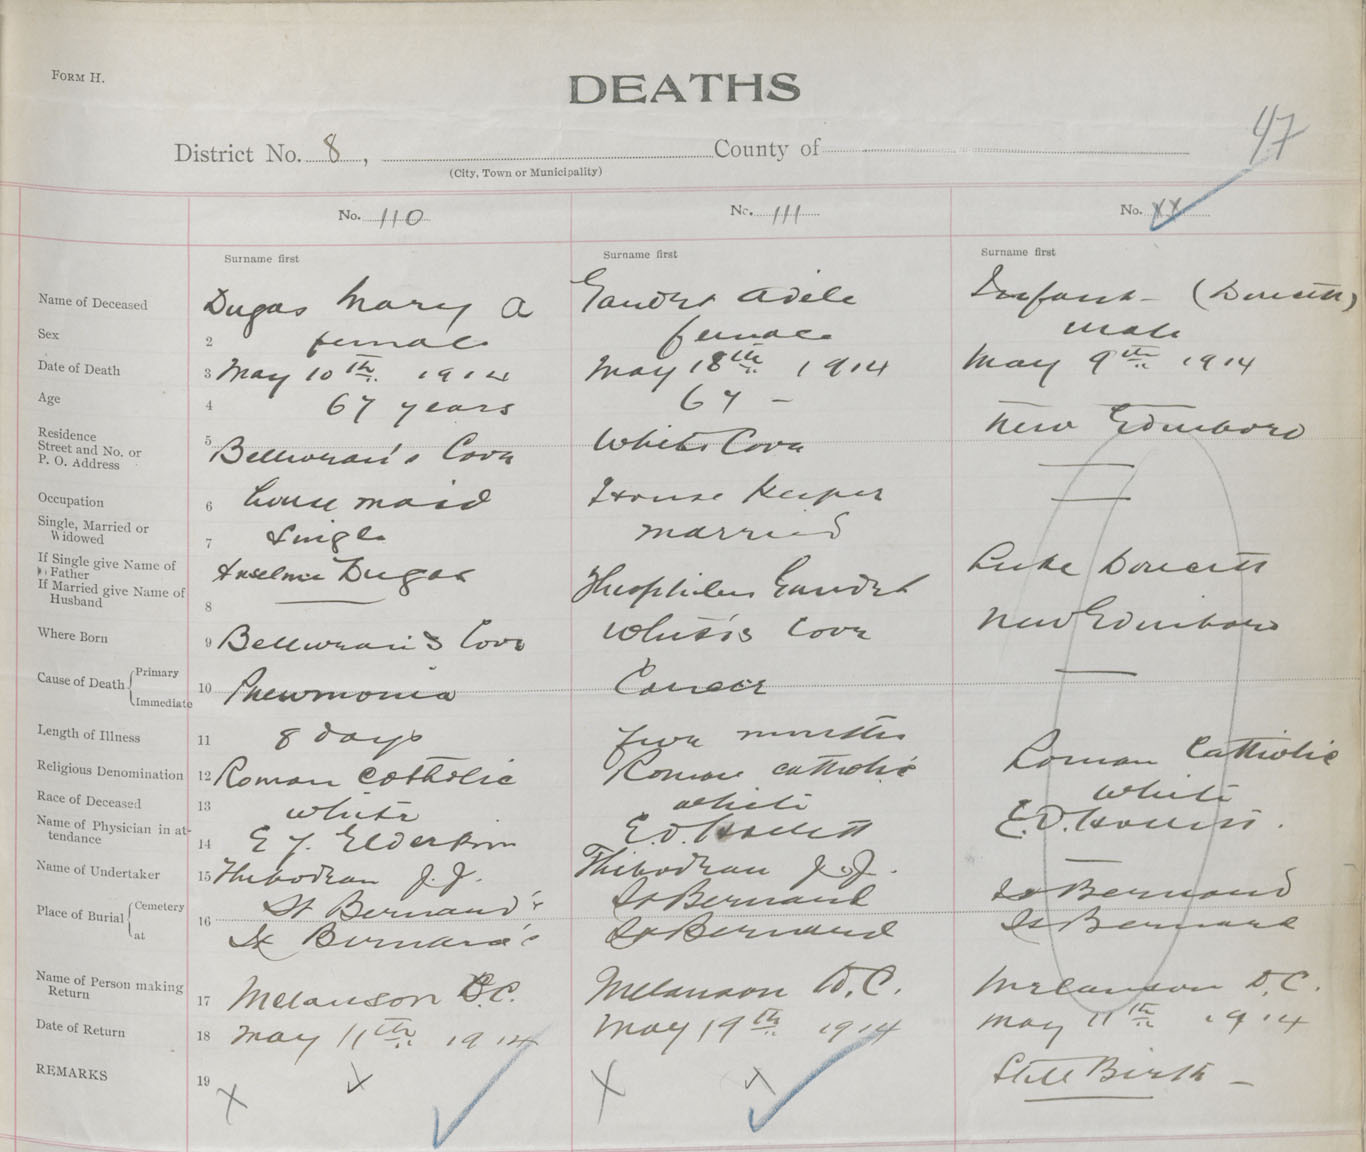 FORM H.
DEATHS
47
District No. 8, County of
(City, Town or Municipality)
No. 110 No. 111 No. XX
Surname first Surname first Surname first
Name of Deceased Dugas Mary A Gaudet Adele Infant - (Doucett)
Sex 2 female female male
Date of Death 3 May 10th 1914 May 18th 1914 May 9th 1914
Age 4 67 years 67 -
Residence Street and No. or P. O. Address 5 Belliveau's Cove Whites Cove New Edinboro
Occupation 6 house maid House Keeper
Single, Married or Widowed 7 Single married
If Single give Name of Father Anselme Dugas Luke Doucett
If Married give Name of Husband 8 Theophilus Gaudet
Where Born 9 Belliveau's Cove White's Cove New Edinboro
Cause of Death Primary Immediate 10 Pneumonia Cancer
Length of Illness 11 8 days months
Religious Denomination 12 Roman Catholic Roman Catholic Roman Catholic
Race of Deceased 13 white white white
Name of Physician in attendance 14 E F Elderkin E.D. E.D.
Name of Undertaker 15 Thibodeau J.J. Thibodeau J.J.
Place of Burial Cemetery 16 St Bernard's St Bernard St Bernard
at St Bernard's St Bernard St Bernard
Name of Person making Return 17 Melanson D.C. Melanson D.C. Melanson D.C.
Date of Return 18 May 11th 1914 May 19th 1914 May 11th 1914
REMARKS 19 X X Still Birth -